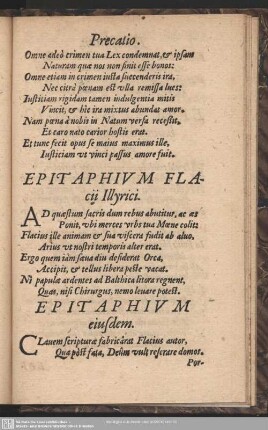 Precatio.
Omne adeò crimen tua Lex condemnat, & ipsam
Naturam quæ nos non sinit esse bonos:
Omne etiam in crimen iusta succenderis ira,
Nec citrà pœnam est vlla remissa lues:
Iustitiam rigidam tamen indulgentia mitis
Vincit, & hîc ira mixtus abundat amor.
Nam pœna à nobis in Natum versa recessit,
Et caro nato carior hostis erat.
Et tunc fecit opus se maius maximus ille,
Iustitiam vt vinci passus amore fuit.
EPITAPHIVM FLA-
cij Illyrici.
AD quæstum sacris dum rebus abutitur, ac æs
Ponit, vbi merces vrbs tua Mœne colit:
Flacius ille animam & sua viscera fudit ab aluo,
Arius vt nostri temporis alter erat.
Ergo quem iàm sæua diu desiderat Orca,
Accipit, & tellus libera peste vacat.
Ni papulæ ardentes ad Balthica litora regnent,
Quas, nisi Chirurgus, nemo leuare potest.
EPITAPHIVM
eiusdem.
CLauem scripturæ fabricârat Flacius autor,
Qua pòst fata, Deûm vult reserare domos.
Por-